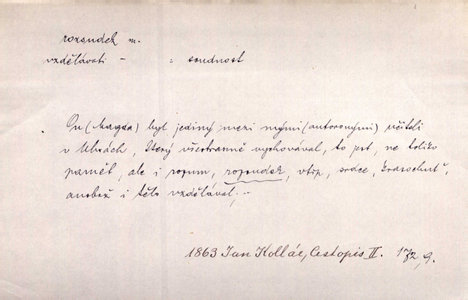 rozsudek m.
vzdělávati - : soudnost
On (Magda) byl jediný mezi mými (autorovými) učiteli
v Uhrách, který všestranně vychovával, to jest, ne toliko
paměť, ale i rozum, rozsudek, vtip, srdce, krasochuť,
anobrž i tělo vzdělával, -
1863 Jan Kollár, Cestopis II. 172, 9.